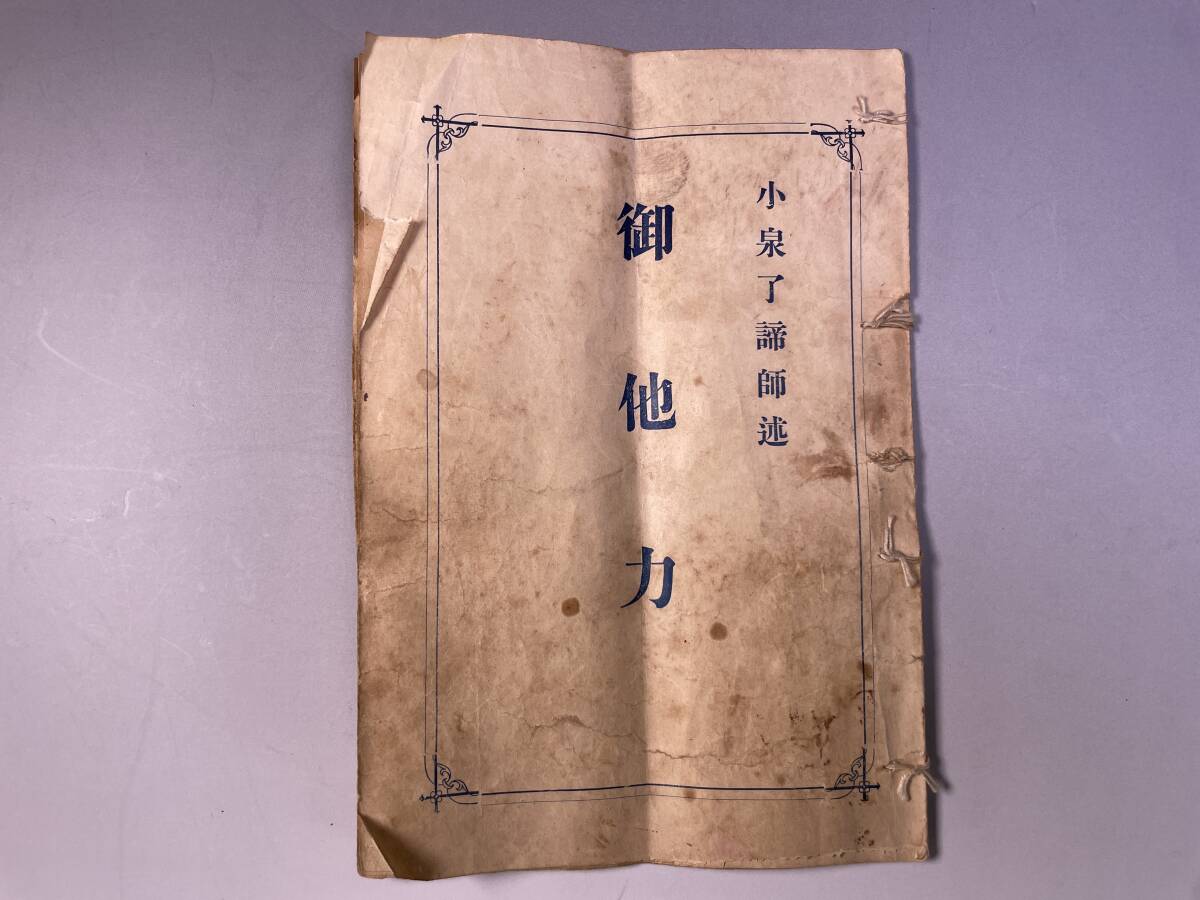 小泉了諦師述
御他力